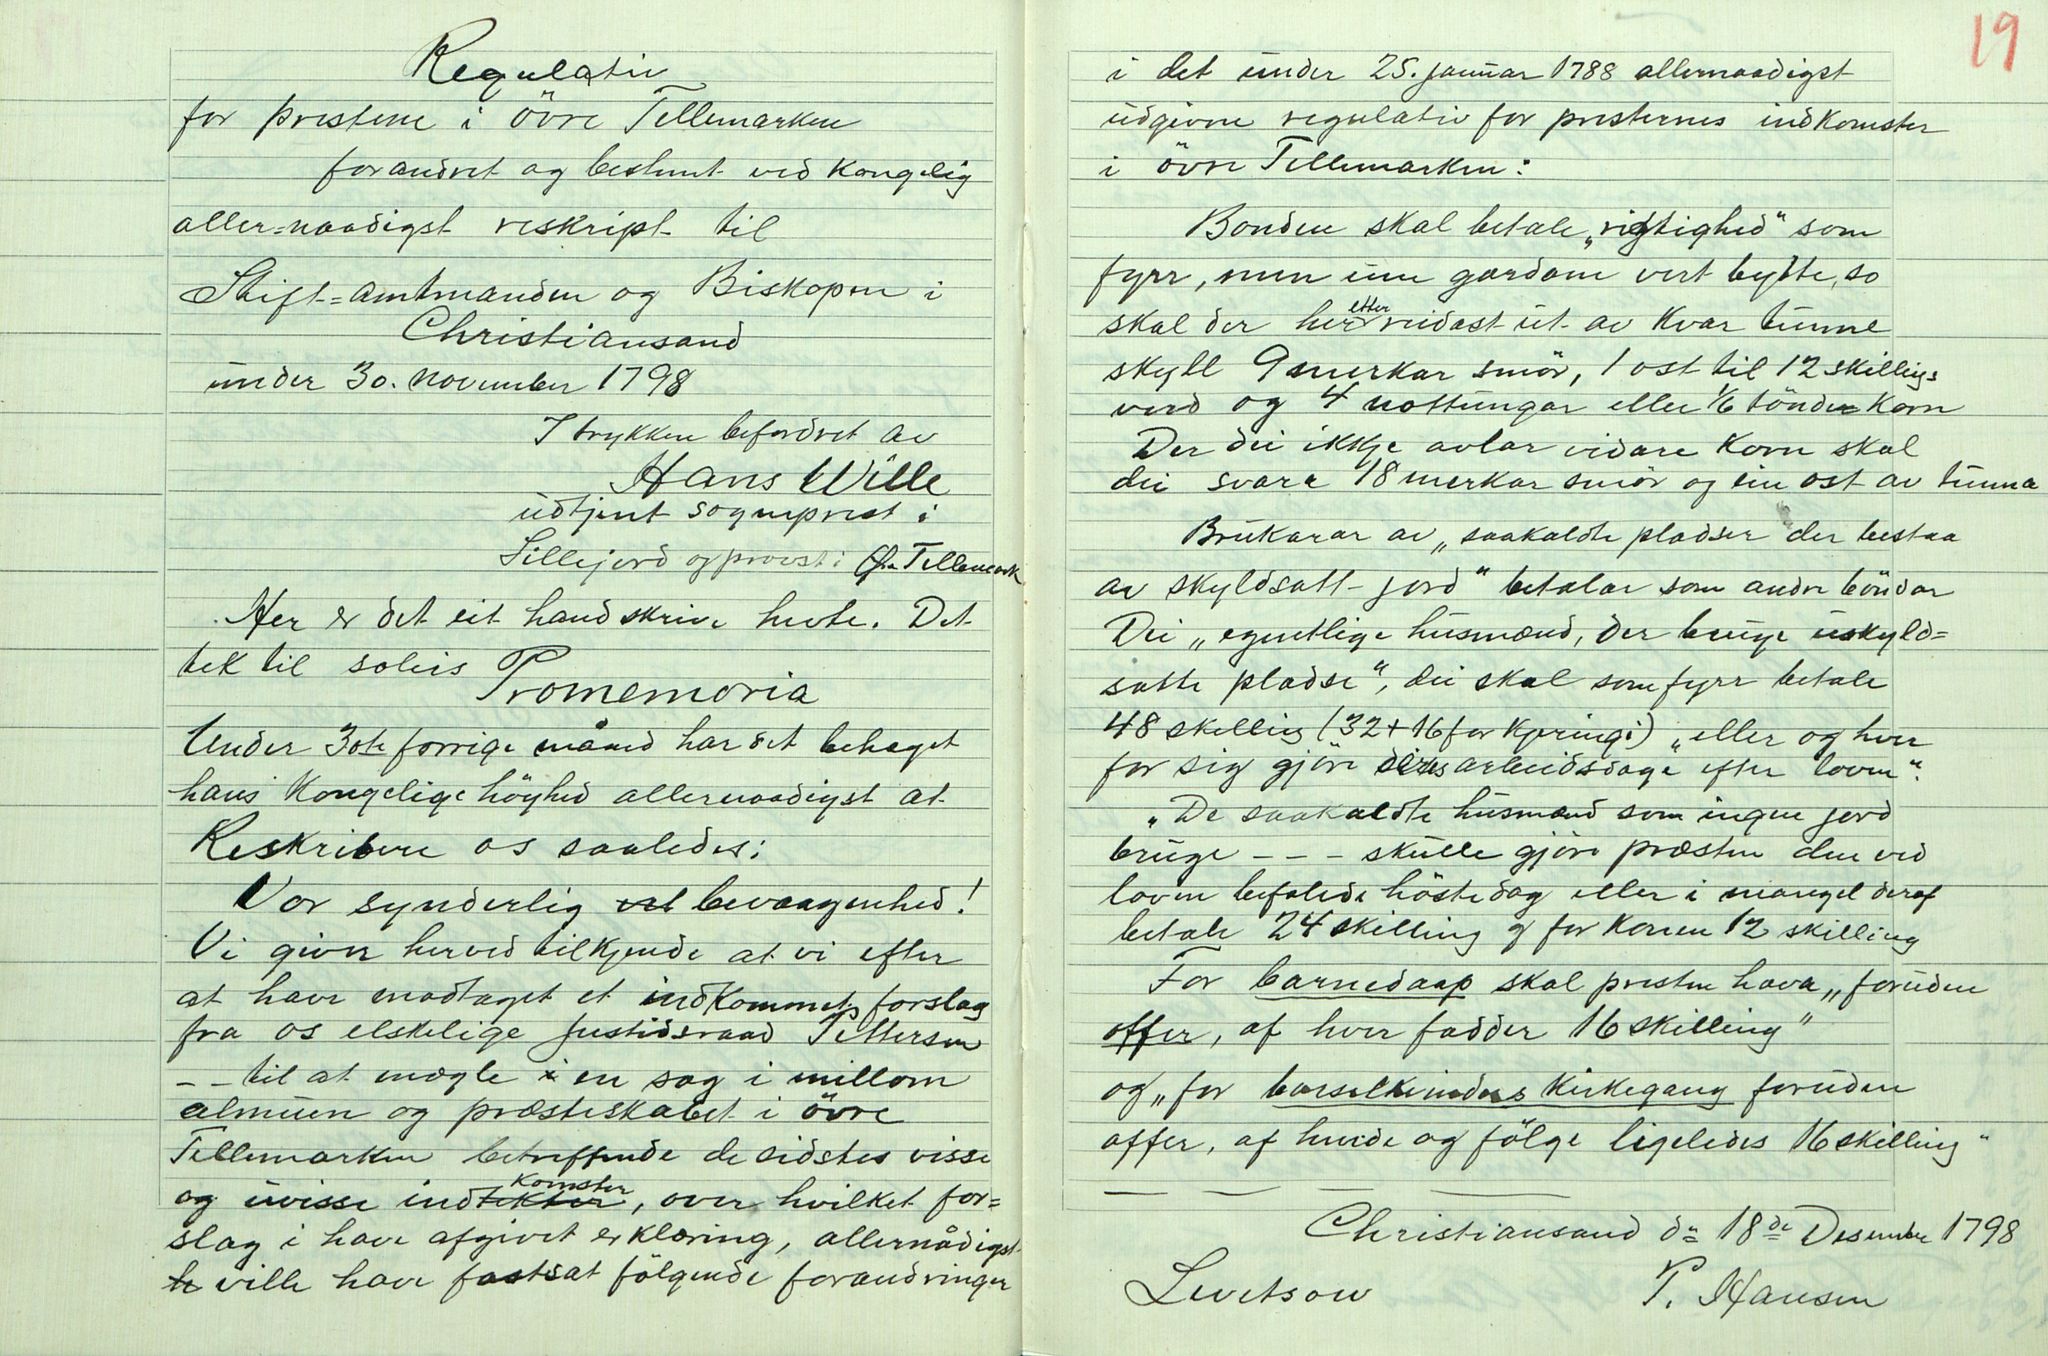 Regulativ
for prestene i övre Tellemarken
forandret og bestemt ved Kongelig
aller=naadigst reskript til
Stift=amtmanden og Biskopen i
Christiansand
under 30. november 1798
I trykken befordret av
Hans Wille
udtjent sogneprest i
Sillejord og provst i Ö. Tellemark
Her er det eit handskrive hefte. Det
tek til soleis
Promemoria
Under 30te forrige måned har det behaget
hans Kongelige höyhed allernaadigst at
Reskribere os saaledes:
Vor synderlig bevaagenhed!
Vi giver herved tilkjende at vi efter
at have modtaget et indkommet forslag
fra os elskelige Justidsraad Pettersen
-- til at mægle i en sag i millom
almuen og præsteskabet i övre
Tellemarken betreffende de sidstes visse
og uvisse indkomster, over hvilket for=
slag i have afgivet erklæring, allernådigst
ville have fastsat fölgende forandringer
19
i det under 25. januar 1788 allernaadigst
udgivne regulativ for presternes indkomster
i övre Tellemarken:
Bonden skal betale „rigtighed" som
fyrr, men um gardane vert bytte, so
skal der heretter reidast ut av kvar tunne
skyll 9 merkar smör, 1 ost til 12 skillings
verd og 4 nottungar eller 1/6 tönde korn
Der dei ikkje avlar vidare korn skal
dei svara 18 merkar smör og ein ost av tunna
Brukarar av „saakaldte pladser der bestaa
av skyldsatt jord" betalar som andre böndar
Dei „egentlige husmænd, der bruge uskyld=
satte pladse", dei skal som fyrr betale
48 skelling (32+16 for kjerringi) „eller og hver
for sig gjöre deres arbeidsdage efter loven".
„De saakaldte husmænd som ingen jord
bruge - - - skulle gjöre præsten den ved
loven befalede höstedag eller i mangel deraf
betale 24 skilling og for konen 12 skilling
For barnedaap skal presten hava „foruden
offer, af hver fadder 16 skilling"
og „for barselkvindens kirkegang foruden
offer, af hende og fölge ligeledes 16 skilling"
Christiansand dn 18de Desember 1798
Levetsow P. Hansen